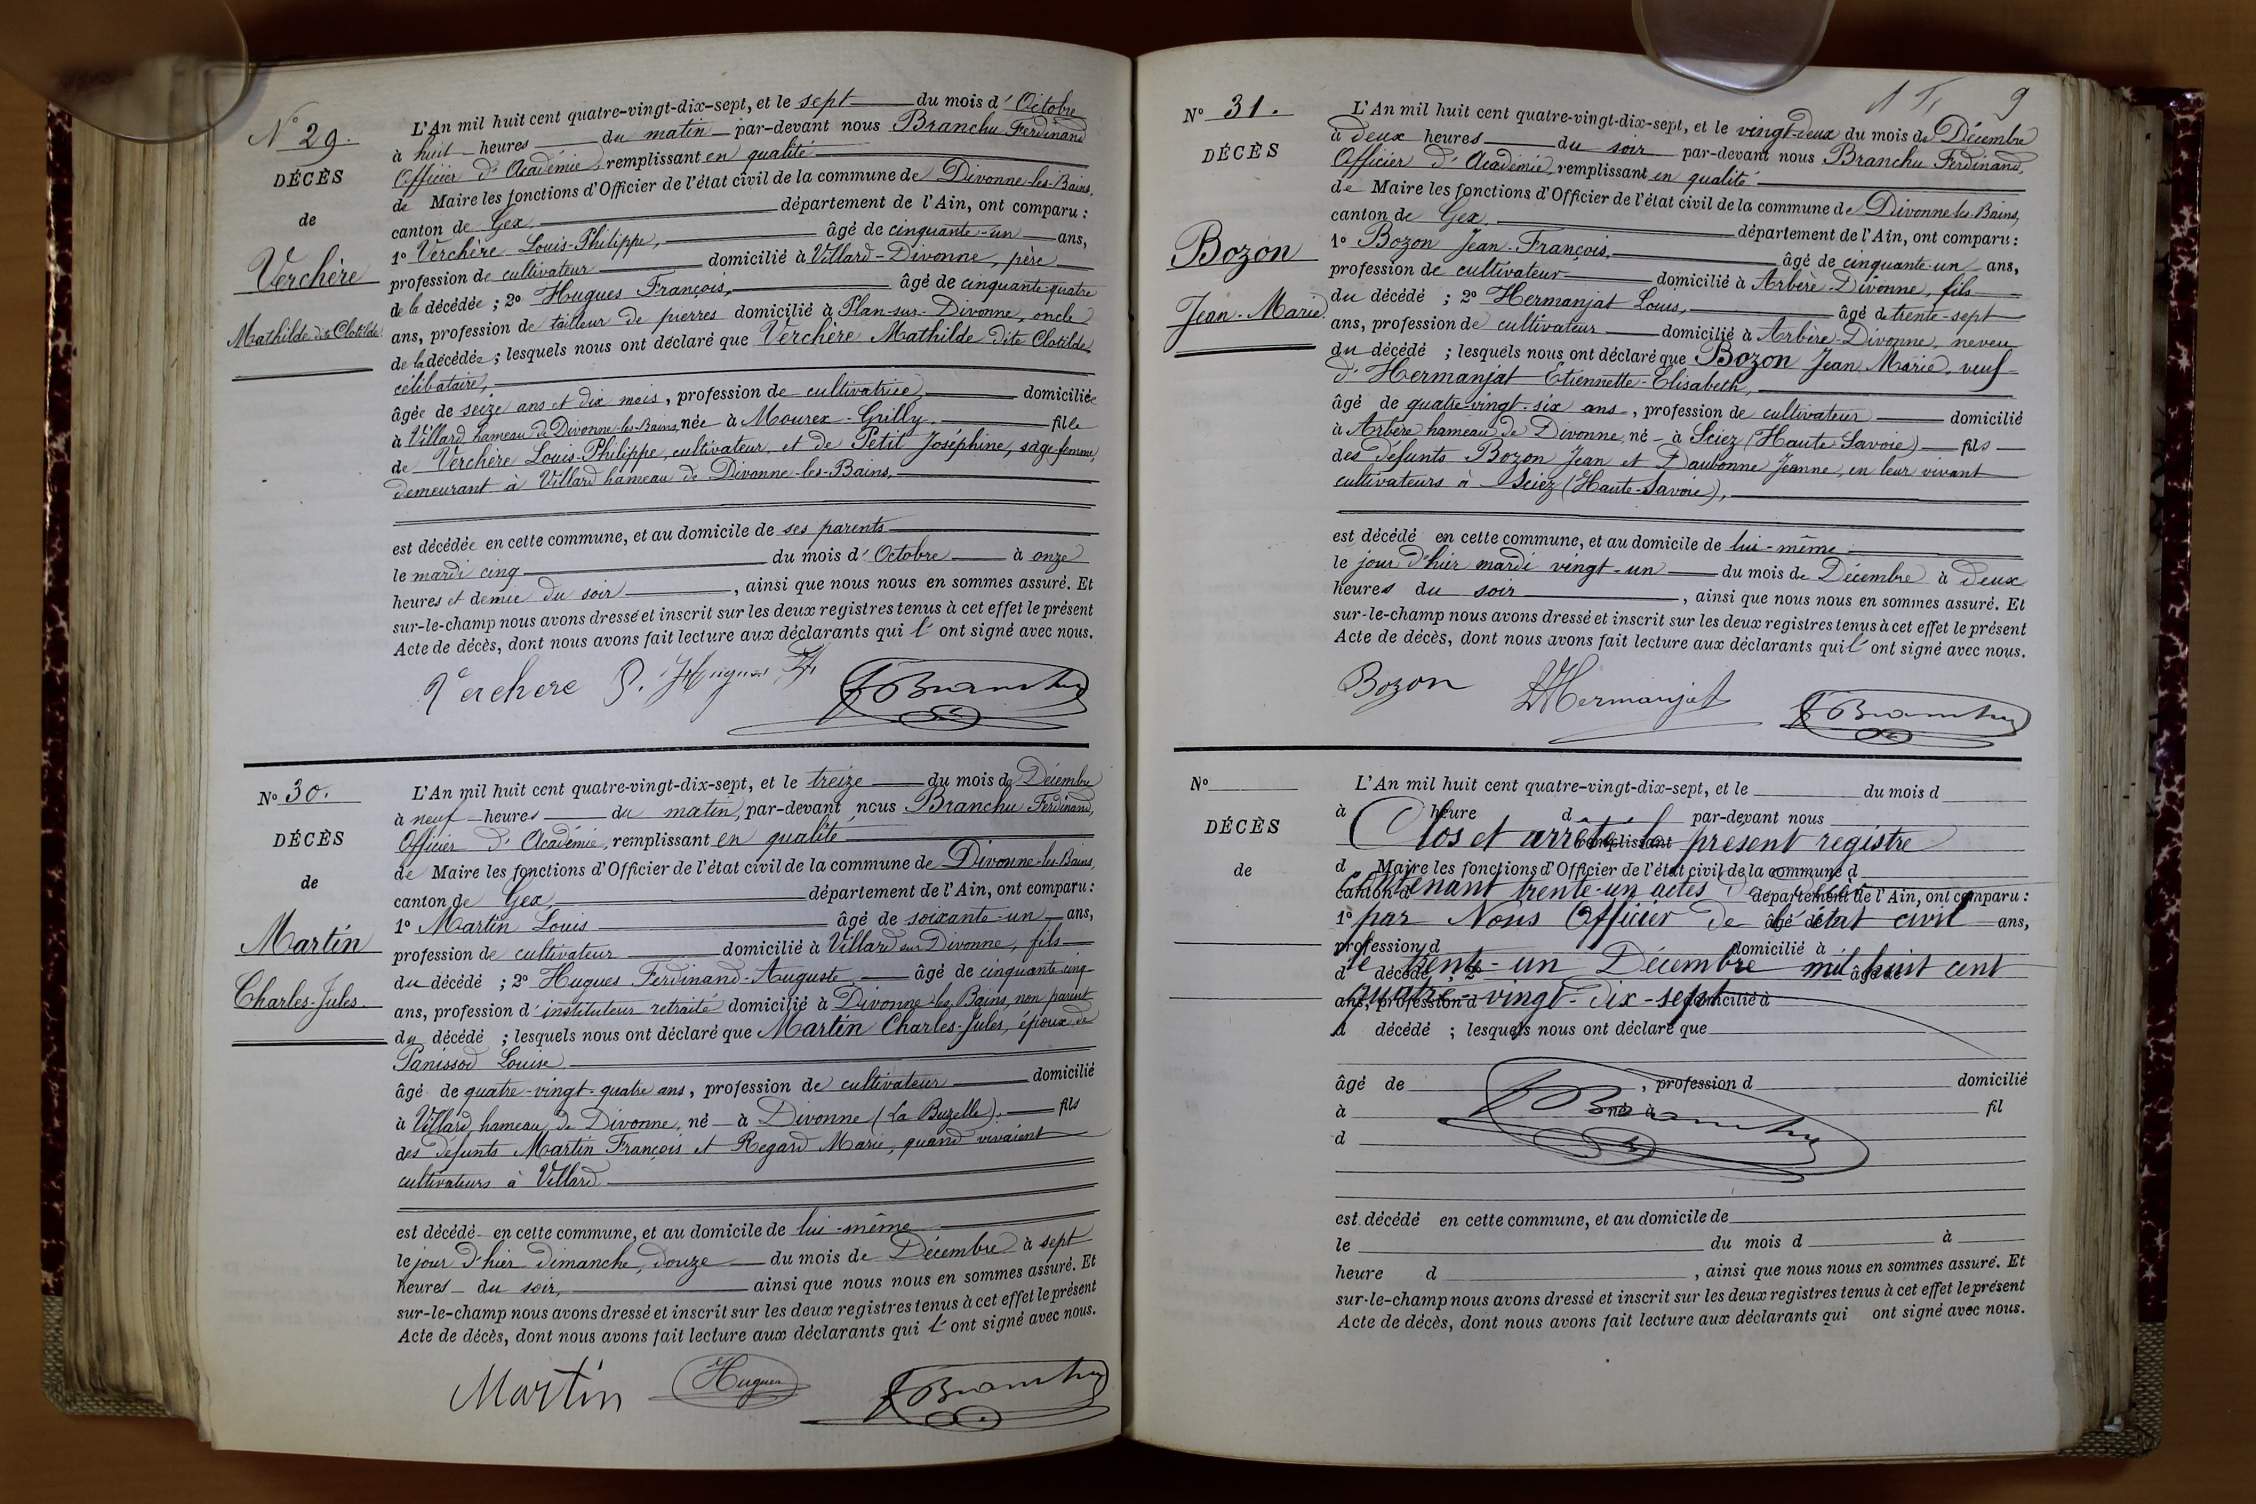 N° 29.
DÉCÈS
de
Verchère
Mathilde dite Clotilde
L'An mil huit cent quatre-vingt-dix-sept, et le sept du mois d'Octobre
à huit heures du matin par-devant nous Branchu Ferdinand
Officier d'Académie, remplissant en qualité
de Maire les fonctions d'Officier de l'état civil de la commune de Divonne-les-Bains,
canton de Gex, département de l'Ain, ont comparu :
1° Verchère Louis-Philippe, âgé de cinquante-un ans,
profession de cultivateur domicilié à Villard-Divonne, père
de la décédée ; 2° Hugues François, âgé de cinquante-quatre
ans, profession de tailleur de pierres domicilié à Plan-sur-Divonne, oncle
de la décédée ; lesquels nous ont déclaré que Verchère Mathilde dite Clotilde,
célibataire,
âgée de seize ans et dix mois, profession de cultivatrice domiciliée
à Villard hameau de Divonne-les-Bains, née à Mourex-Grilly, fille
de Verchère Louis-Philippe, cultivateur, et de Petit Joséphine, sage-femme,
demeurant à Villard hameau de Divonne-les-Bains,
est décédée en cette commune, et au domicile de ses parents
le mardi cinq du mois d'Octobre à onze
heures et demie du soir, ainsi que nous nous en sommes assuré. Et
sur-le-champ nous avons dressé et inscrit sur les deux registres tenus à cet effet le présent
Acte de décès, dont nous avons fait lecture aux déclarants qui l'ont signé avec nous.
Verchere P. Hugues F Branchu
N° 30.
DÉCÈS
de
Martin
Charles-Jules.
L'An mil huit cent quatre-vingt-dix-sept, et le treize du mois de Décembre
à neuf heures du matin, par-devant nous Branchu Ferdinand,
Officier d'Académie, remplissant en qualité
de Maire les fonctions d'Officier de l'état civil de la commune de Divonne-les-Bains,
canton de Gex, département de l'Ain, ont comparu :
1° Martin Louis âgé de soixante-un ans,
profession de cultivateur domicilié à Villard sur Divonne, fils
du décédé ; 2° Hugues Ferdinand-Auguste, âgé de cinquante-cinq
ans, profession d'instituteur retraité domicilié à Divonne-les-Bains, non parent
du décédé ; lesquels nous ont déclaré que Martin Charles-Jules, époux de
Panissod Louise
âgé de quatre-vingt-quatre ans, profession de cultivateur domicilié
à Villard, hameau de Divonne, né à Divonne (La Buzelle), fils
des défunts Martin François et Regard Marie, quand vivaient
cultivateurs à Villard
est décédé en cette commune, et au domicile de lui-même
le jour d'hier dimanche, douze du mois de Décembre à sept
heures du soir, ainsi que nous nous en sommes assuré. Et
sur-le-champ nous avons dressé et inscrit sur les deux registres tenus à cet effet le présent
Acte de décès, dont nous avons fait lecture aux déclarants qui l'ont signé avec nous.
Martin Hugues Branchu
9
N° 31.
DÉCÈS
Bozon
Jean-Marie.
L'An mil huit cent quatre-vingt-dix-sept, et le vingt-deux du mois de Décembre
à deux heures du soir par-devant nous Branchu Ferdinand,
Officier d'Académie, remplissant en qualité
de Maire les fonctions d'Officier de l'état civil de la commune de Divonne-les-Bains,
canton de Gex, département de l'Ain, ont comparu :
1° Bozon Jean-François, âgé de cinquante-un ans,
profession de cultivateur domicilié à Arbère-Divonne, fils
du décédé ; 2° Hermanjat Louis, âgé de trente-sept
ans, profession de cultivateur domicilié à Arbère-Divonne, neveu
du décédé ; lesquels nous ont déclaré que Bozon Jean Marie, veuf
d'Hermanjat Etiennette-Elisabeth,
âgé de quatre-vingt-six ans, profession de cultivateur domicilié
à Arbère hameau de Divonne, né à Sciez (Haute-Savoie) fils
des défunts Bozon Jean et Daubonne Jeanne, en leur vivant
cultivateurs à Sciez (Haute-Savoie),
est décédé en cette commune, et au domicile de lui-même
le jour d'hier mardi vingt-un du mois de Décembre à deux
heures du soir, ainsi que nous nous en sommes assuré. Et
sur-le-champ nous avons dressé et inscrit sur les deux registres tenus à cet effet le présent
Acte de décès, dont nous avons fait lecture aux déclarants qui l'ont signé avec nous.
Bozon LHermanjat Branchu
N°
DÉCÈS
de
L'An mil huit cent quatre-vingt-dix-sept, et le du mois d
à heure d par-devant nous
Clos et arrêté le présent registre
remplissant
d Maire les fonctions d'Officier de l'état civil de la commune d
contenant trente-un actes de décès
canton d département de l'Ain, ont comparu :
par Nous Officier de l'état civil
1° âgé de ans,
profession d domicilié à
le trente-un Décembre mil huit cent
d décédé ; 2° âgé de
quatre-vingt-dix-sept
ans, profession d domicilié à
d décédé ; lesquels nous ont déclaré que
âgé de , profession d domicilié
à né à fil
Branchu
d
est décédé en cette commune, et au domicile de
le du mois d à
heure d , ainsi que nous nous en sommes assuré. Et
sur-le-champ nous avons dressé et inscrit sur les deux registres tenus à cet effet le présent
Acte de décès, dont nous avons fait lecture aux déclarants qui ont signé avec nous.